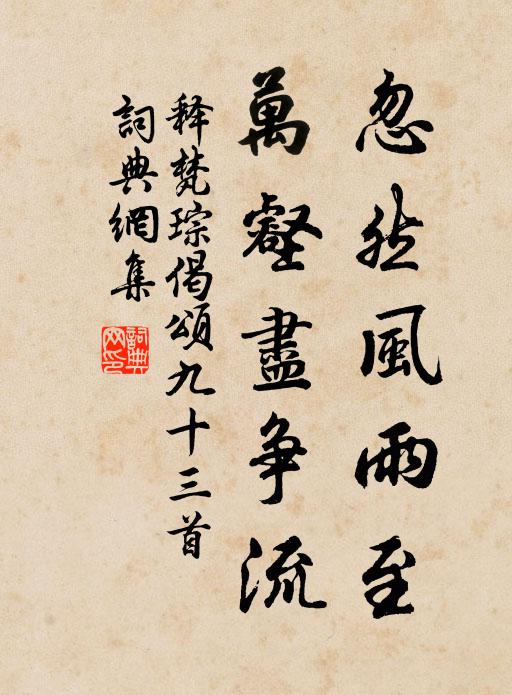 忽然風雨至
萬壑盡爭流
释梵琮偈頌九十三首
詞典網集
詞典
网印